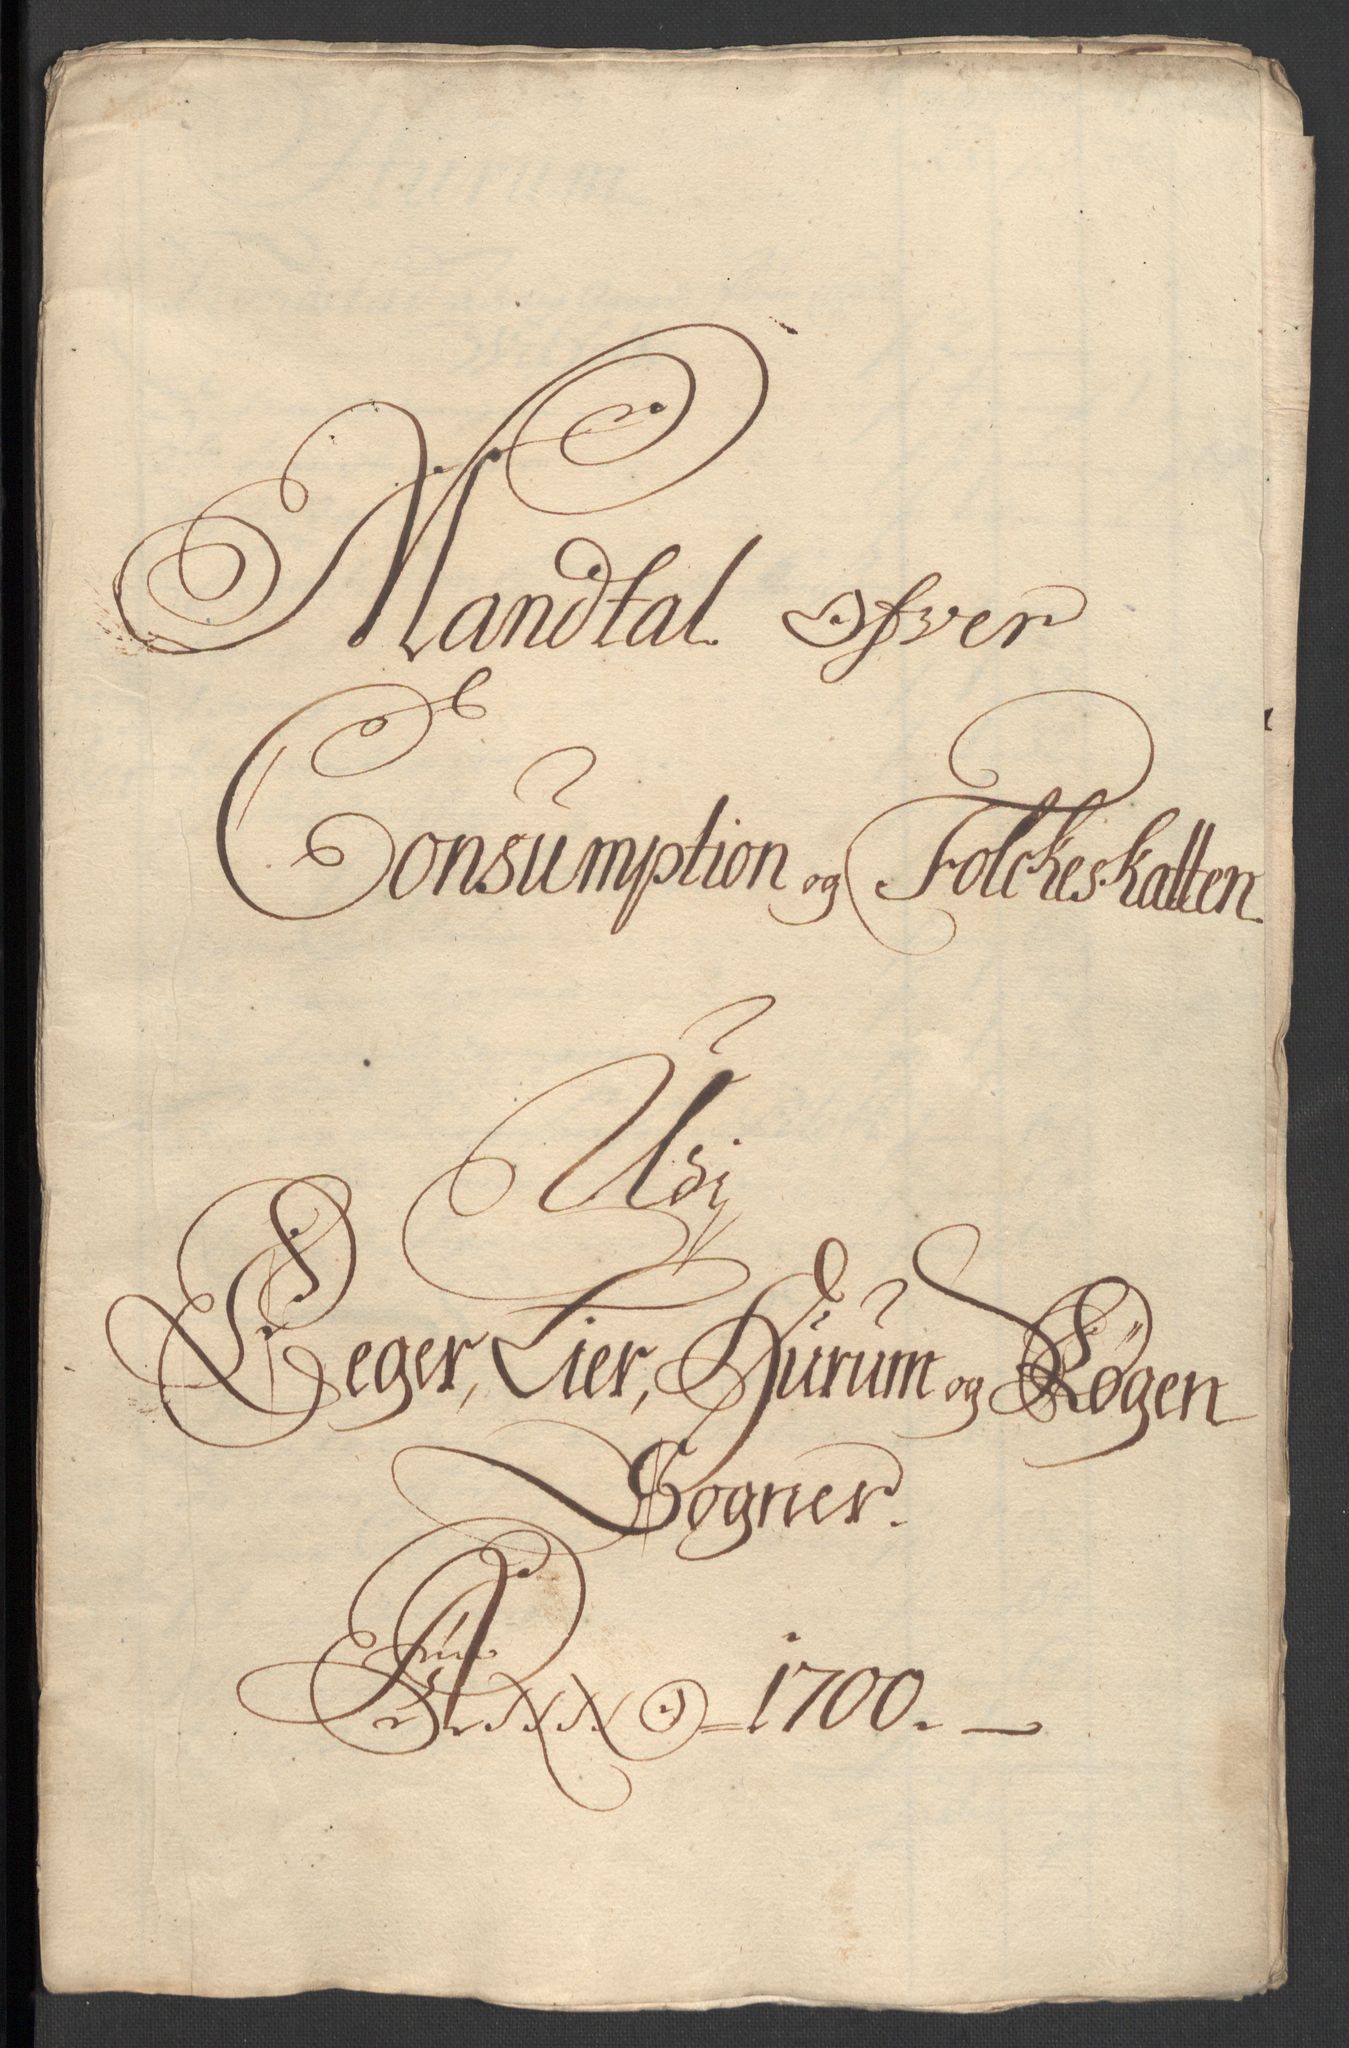 Mandtal ofver
Consumption og Folckeskatten
Udj
Eeger, Lier, Hurum og Røgen
Sogner.
Anno 1700.